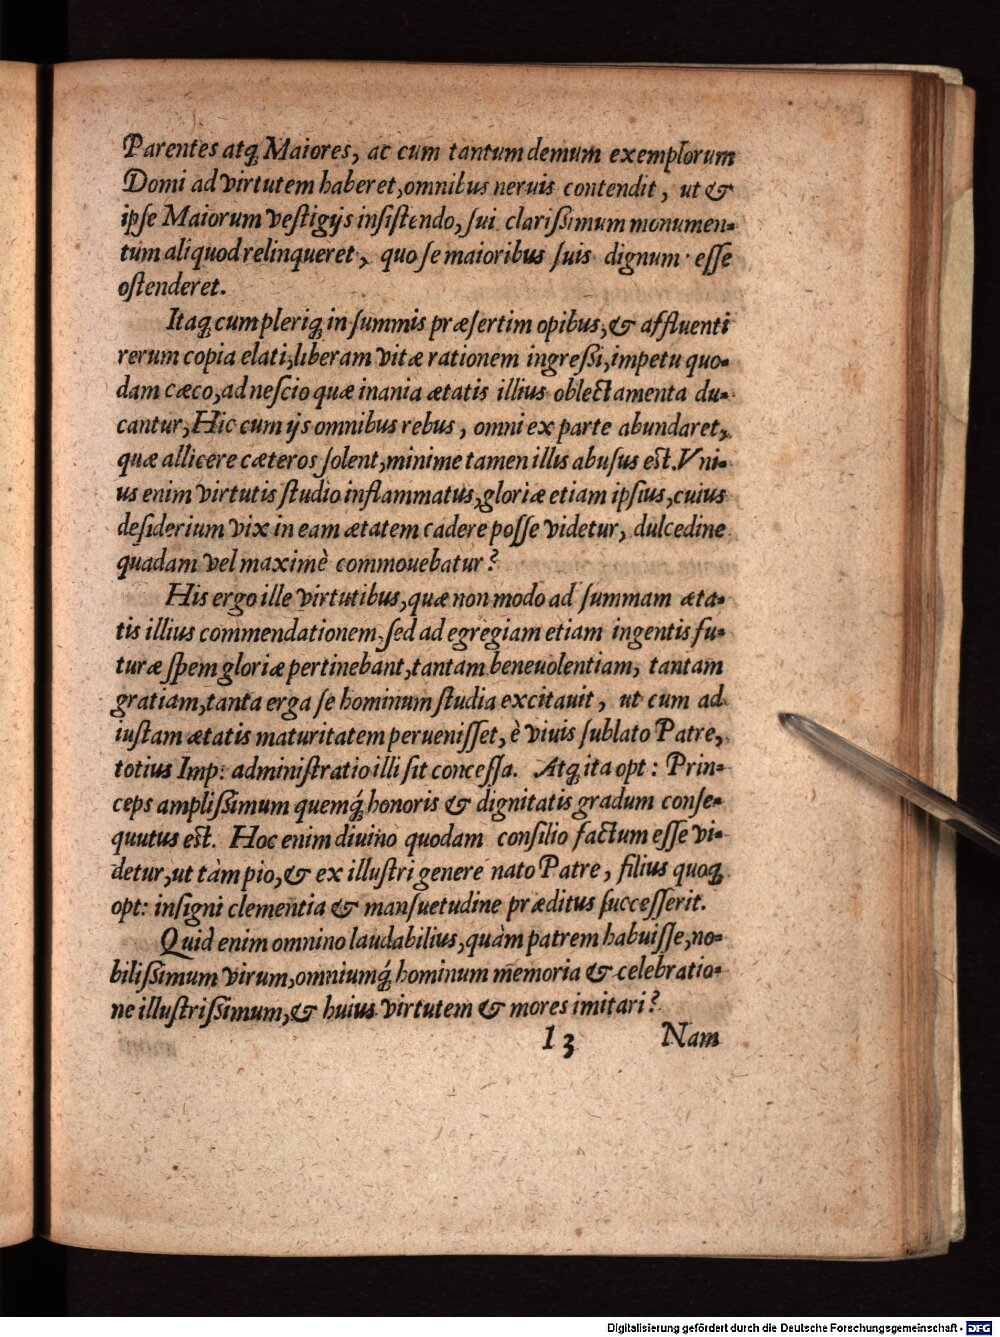 Parentes atq́ꝫ Maiores, ac cum tantum demum exemplorum
Domi ad virtutem haberet, omnibus neruis contendit, ut &
ipſe Maiorum veſtigijs inſiſtendo, ſui clarißimum monumen-
tum aliquod relinqueret, quo ſe maioribus ſuis dignum eſſe
oſtenderet.
Itaqꝫ cum pleriqꝫ in ſummis præſertim opibus, & affluenti
rerum copia elati, liberam vitæ rationem ingreßi, impetu quo-
dam cæco, ad neſcio quæ inania ætatis illius oblectamenta du-
cantur, Hic cum ijs omnibus rebus, omni ex parte abundaret,
quæ allicere cæteros ſolent, minime tamen illis abuſus est. Vni-
us enim virtutis ſtudio inflammatus, gloriæ etiam ipſius, cuius
deſiderium vix in eam ætatem cadere poſſe videtur, dulcedine
quadam vel maximè commouebatur?
His ergo ille virtutibus, quæ non modo ad ſummam æta-
tis illius commendationem, ſed ad egregiam etiam ingentis fu-
turæ ſpem gloriæ pertinebant, tantam beneuolentiam, tantam
gratiam, tanta erga ſe hominum ſtudia excitauit, ut cum ad
iuſtam ætatis maturitatem perueniſſet, è viuis ſublato Patre,
totius Imp: adminiſtratio illi ſit conceſſa. Atqꝫ ita opt: Prin-
ceps amplißimum quemq́ꝫ honoris & dignitatis gradum conſe-
quutus est. Hoc enim diuino quodam conſilio factum eſſe vi-
detur, ut tàm pio, & ex illuſtri genere nato Patre, filius quoqꝫ
opt: inſigni clementia & manſuetudine præditus ſucceſſerit.
Quid enim omnino laudabilius, quàm patrem habuiſſe, no-
bilißimum virum, omniumq́ꝫ hominum memoria & celebratio-
ne illuſtrißimum, & huius virtutem & mores imitari?
I 3 Nam
Digitalisierung gefördert durch die Deutsche Forschungsgemeinschaft - DFG